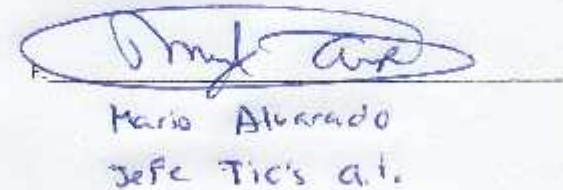 F.
Mario Alvarado
Jefe Tic's a.i.